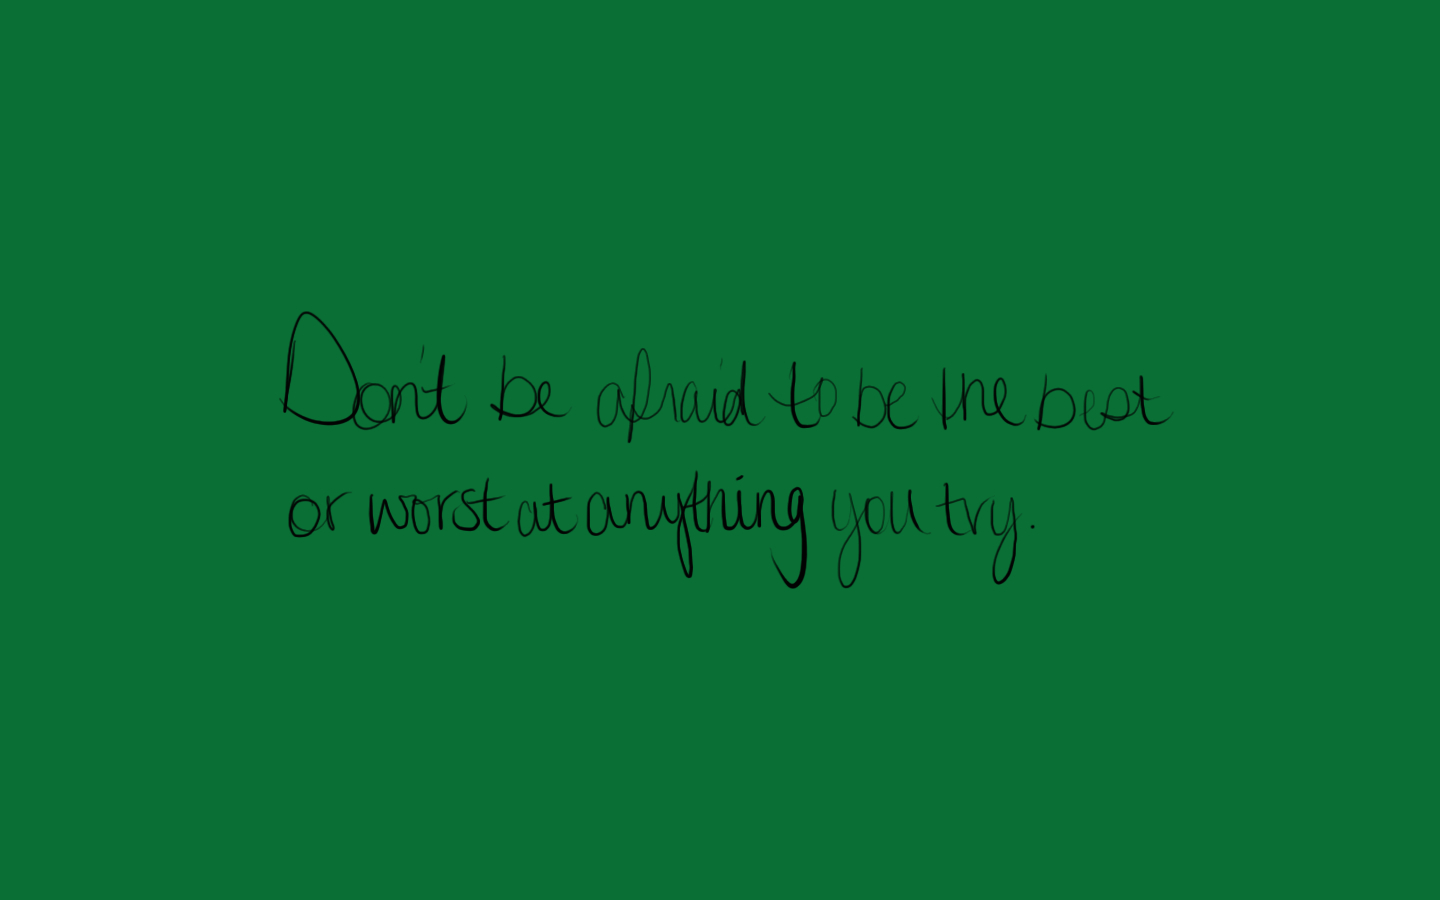 Don't be afraid to be the best
or worst at anything you try.